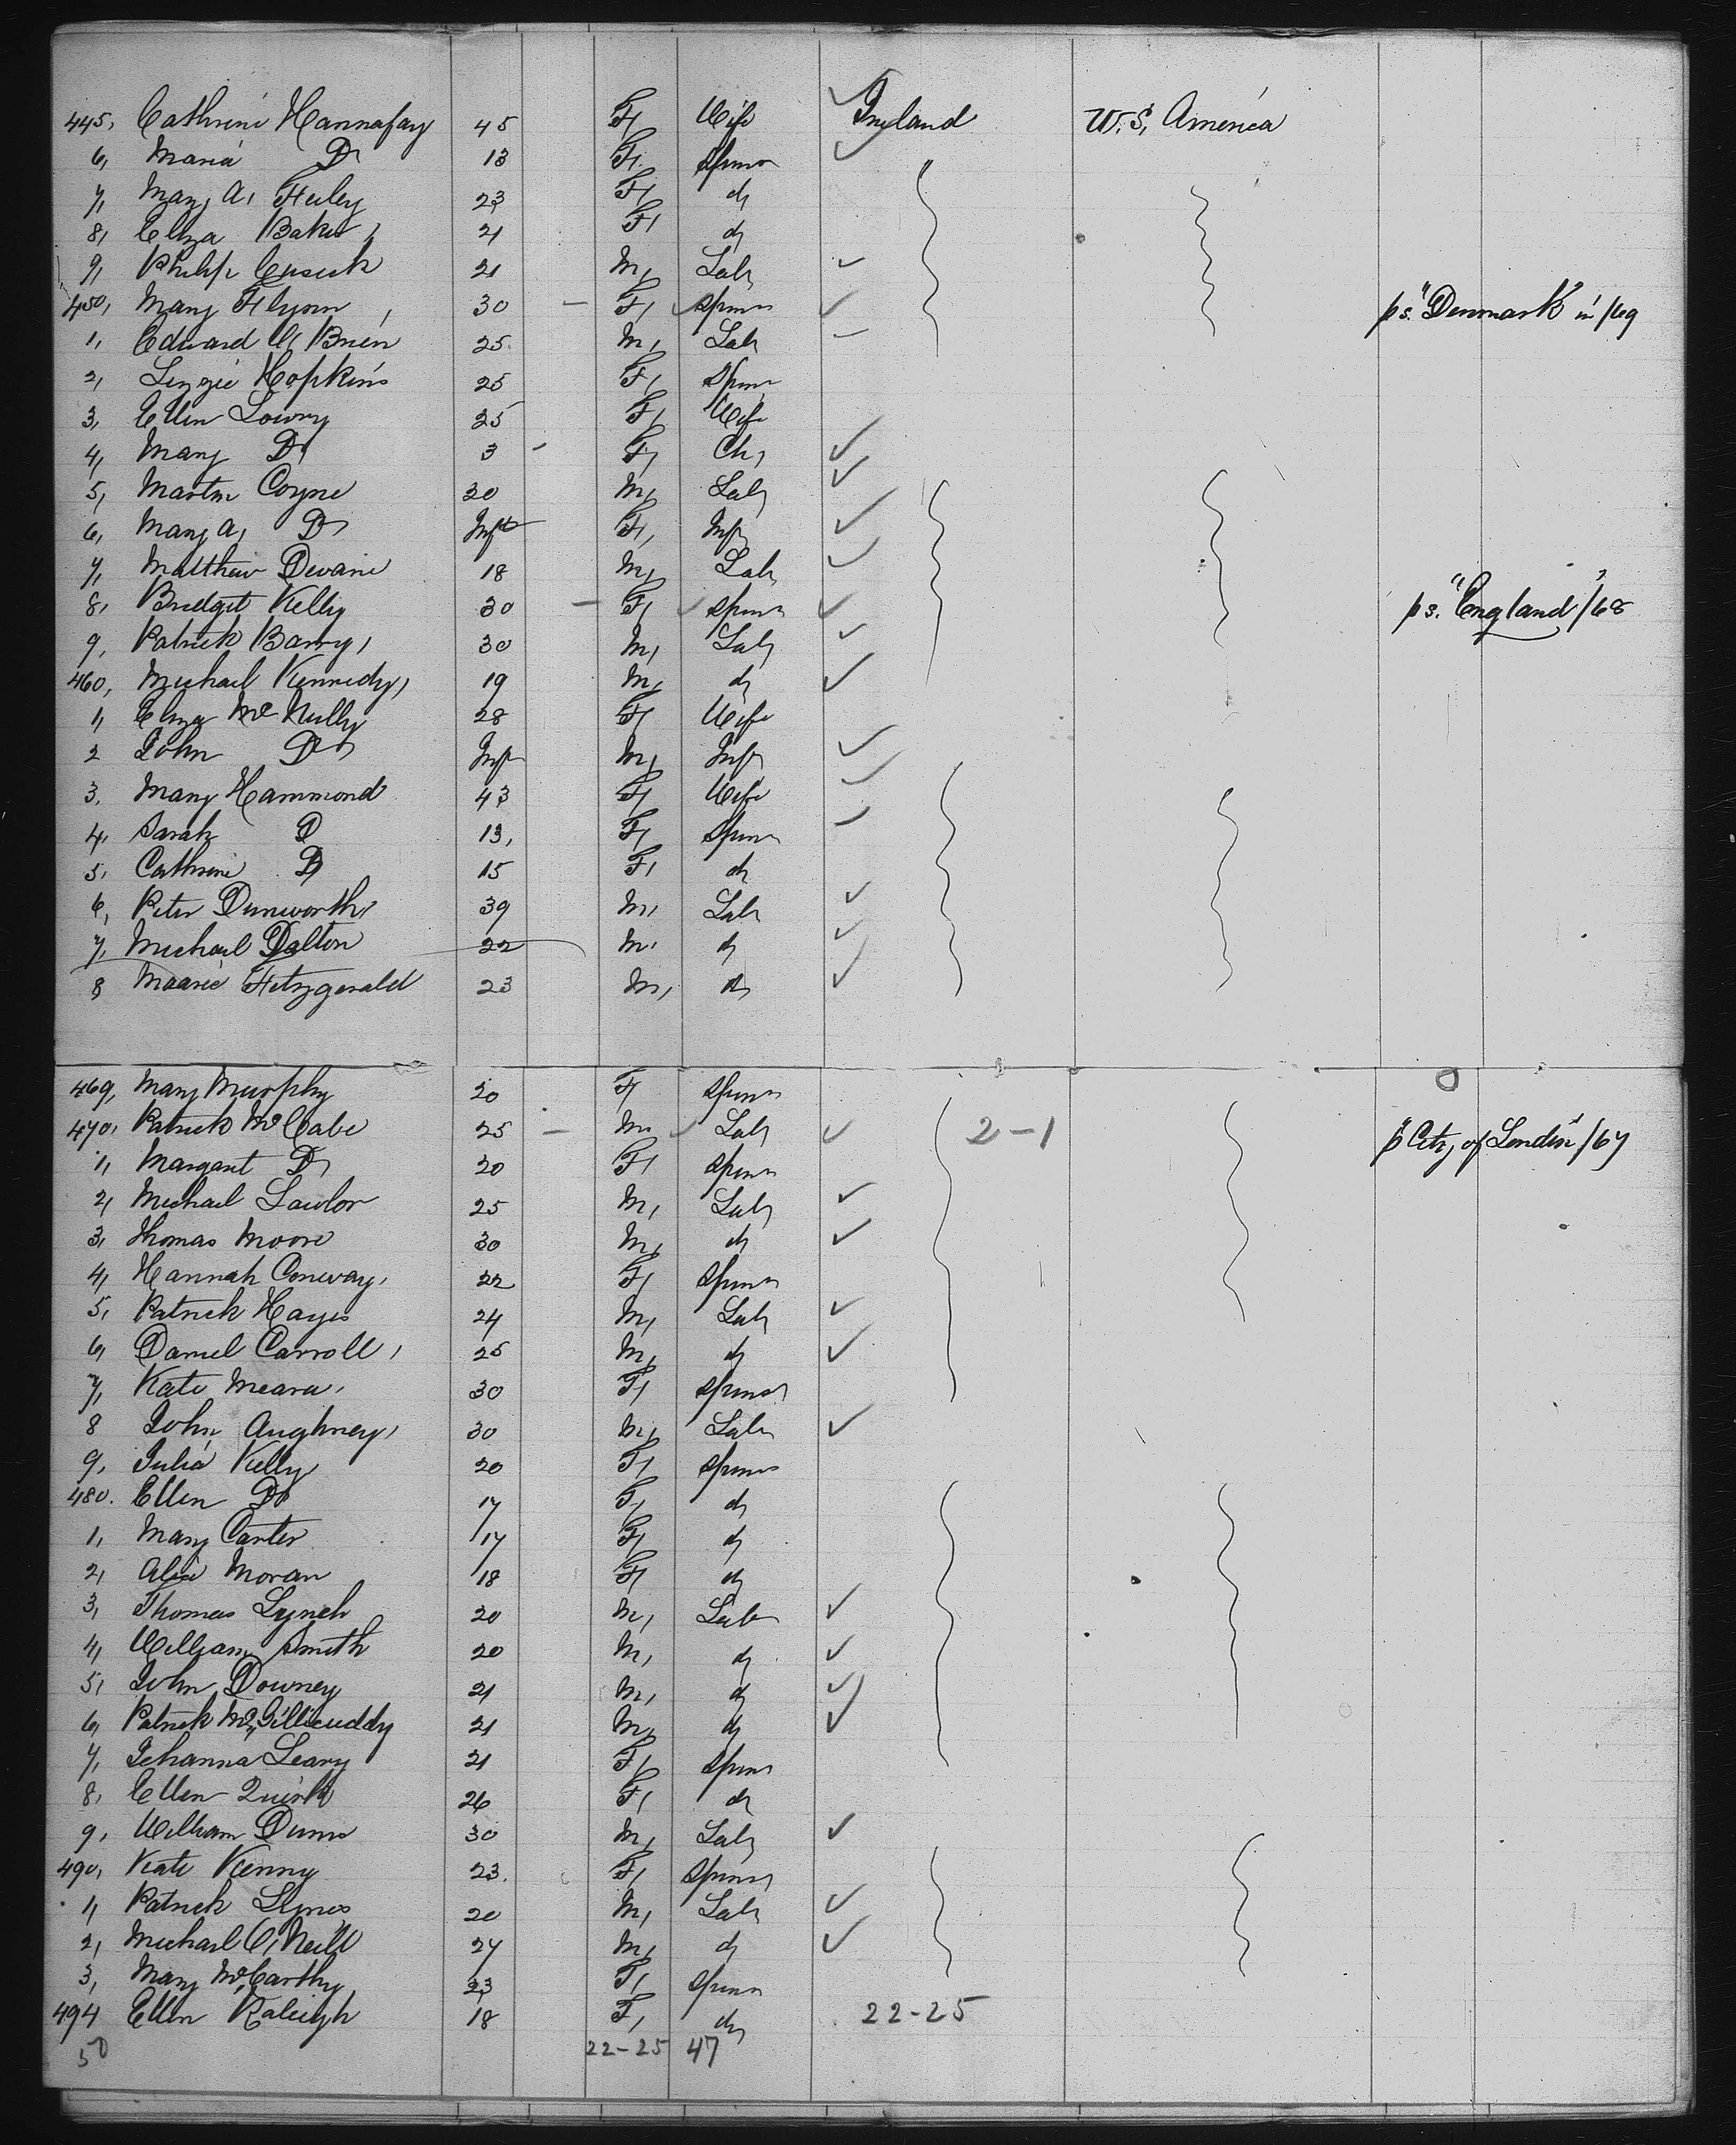 445, Cathrine Hannafay 45 F, Wife England U.S. America
6, Maria D 13 F, Spins
7, Mary A, 23 F, do
8, Eliza Baker, 21 F, do
9, Philip Cusick 21 M, Lab
450, Mary Flynn, 30 — F, Spins ps. "Denmark" in /69
1, Edward O'Brien 25 M, Lab
2, Lizzie Hopkins 25 F, Spins
3, Ellen Lowry 25 F, Wife
4, Mary Do 3 - F, Ch,
5, Martin Coyne 30 M, Lab
6, Mary A, Do Inft F, Inf
7, Matthew Devane 18 M, Lab
8, Bridget Kelly 30 — F, Spins ps. "England" /68
9, Patrick Barry, 30 M, Lab
460, Michael Kennedy, 19 M, do
1, Eliza McNully 28 F, Wife
2 John Do Inf M, Inf
3, Mary Hammond 43 F, Wife
4, Sarah D 13, F, Spins
5, Cathrine D 15 F, do
6, Peter Dunworth, 39 M, Lab
7, Michael Dalton 22 M, do
8 Fitzgerald 23 M, do
469, Mary Murphy 20 F Spins
470, Patrick McCabe 25 — M Lab 2-1 p "City of London" /67
1, Margaret Do 20 F, Spins
2, Michael Lawlor 25 M, Lab
3, Thomas Moore 30 M, do
4, Hannah Conway, 22 F, Spins
5, Patrick Hayes 24 M, Lab
6, Daniel Carroll, 25 M, do
7, Kate Meara, 30 F, Spins
8 John Aughney, 30 M, Lab
9, Julia Kelly 20 F, Spins
480. Ellen Do 17 F, do
1, Mary Carter 17 F, do
2, Alice Moran 18 F, do
3, Thomas Lynch 20 M, Lab
4, William Smith 20 M, do
5, John Downey 21 M, do
6, Patrick McGillicuddy 21 M, do
7, Johanna Leary 21 F, Spins
8, Ellen Quirk 26 F, do
9, William Dunn 30 M, Lab
490, Kate Kenny 23. F, Spins
1, Patrick 20 M, Lab
2, Michael O'Neill 24 M, do
3, Mary McCarthy 23 F, Spins
494 Ellen Raleigh 18 F, do 22-25
50 22-25 47